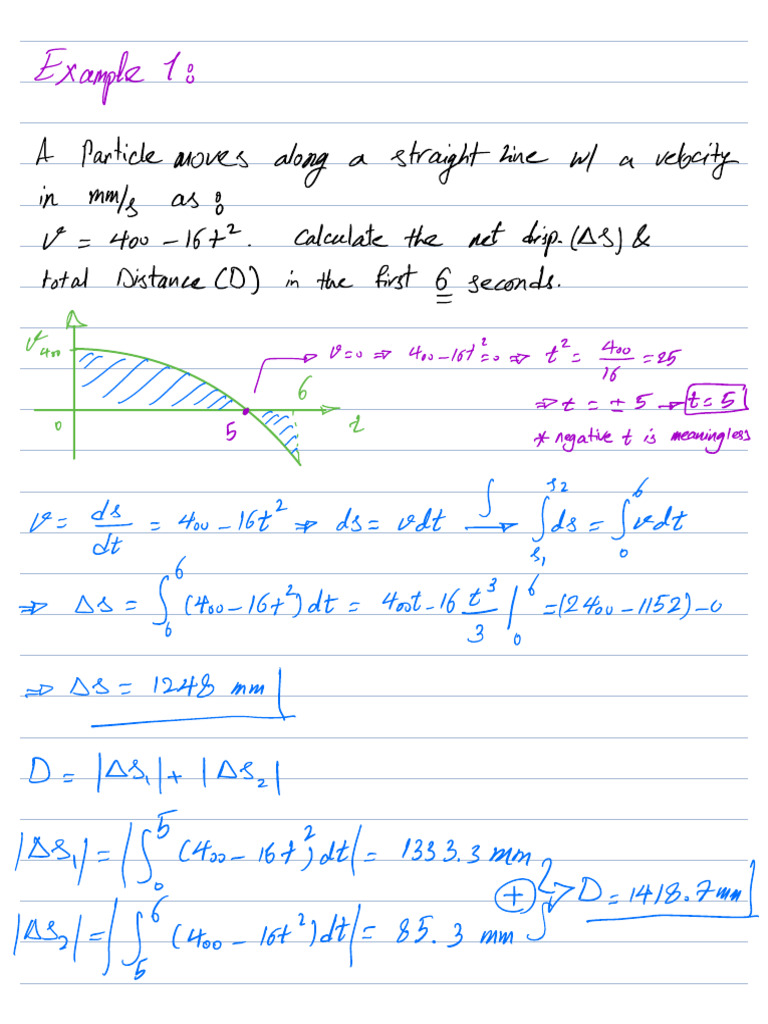 Example 1:
A Particle moves along a straight line w/ a velocity
in mm/s as :
v = 400 - 16t². Calculate the net disp. (Δs) &
total Distance (D) in the first 6 seconds.
v
400
0
5
6
t
v=0 ⇒ 400-16t²=0 ⇒ t² = 400/16 = 25
⇒ t = ± 5 → t = 5
* negative t is meaningless
v = ds/dt = 400 - 16t² ⇒ ds = vdt ∫→ ∫_{s₁}^{s₂} ds = ∫_0^6 vdt
⇒ Δs = ∫_0^6 (400 - 16t²) dt = 400t - 16 t³/3 |_0^6 = (2400 - 1152) - 0
⇒ Δs = 1248 mm
D = |Δs₁| + |Δs₂|
|Δs₁| = |∫_0^5 (400 - 16t²) dt| = 1333.3 mm
(+) ⇒ D = 1418.7 mm
|Δs₂| = |∫_5^6 (400 - 16t²) dt| = 85.3 mm